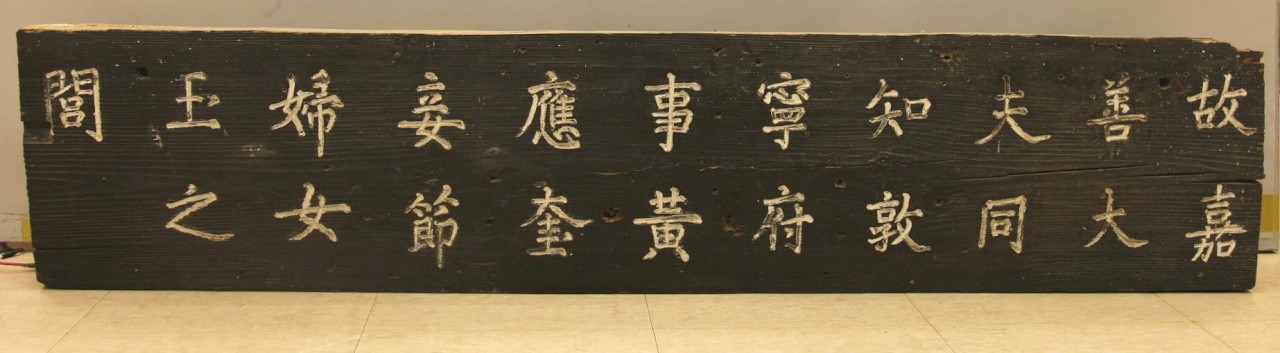 故嘉
善大
夫同
知敦
寧府
事黃
應奎
妾節
婦女
玉之
閭